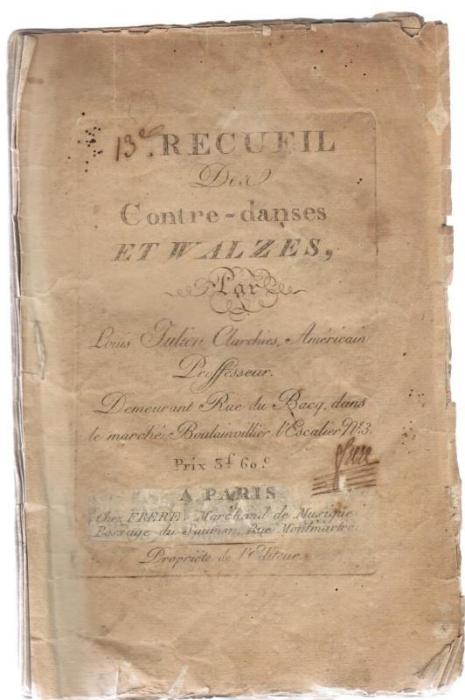 13e. RECUEIL
Des
Contre-danses
ET WALZES,
Par
Louis Julien Clarchies, Américain
Proffésseur.
Demeurant Rue du Bacq, dans
le marché Boulainvillier l'Escalier N.º 3.
Prix 3f 60.c
A PARIS
Chez FRERE Marchand de Musique
Passage du Saumon, Rue Montmartre.
frere
Propriété de l'Editeur.